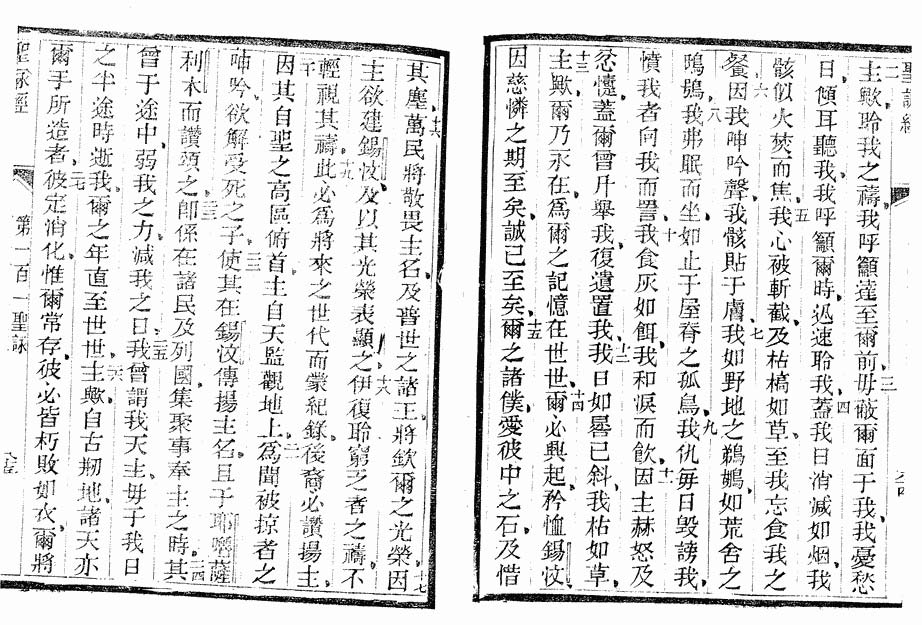 聖詠經
二主歟聆我之禱我呼籲達至爾前毋蔽爾面于我我憂愁
日傾耳聽我我呼籲爾時迅速聆我蓋我日消減如烟我
骸似火焚而焦我心被斬截及枯槁如草至我忘食我之
餐因我呻吟聲我骸貼于膚我如野地之鵜鶘如荒舍之
鴞鵂我弗眠而坐如止于屋脊之孤鳥我仇每日毀謗我
憤我者向我而詈我食灰如餌我和淚而飲因主赫怒及
忿懥蓋爾曾升舉我復遺置我我日如晷已斜我枯如草
主歟爾乃永在爲爾之記憶在世世爾必興起矜恤錫汶
因慈憐之期至矣誠已至矣爾之諸僕愛彼中之石及惜
其塵萬民將敬畏主名及普世之諸王將欽爾之光榮因
主欲建錫汶及以其光榮表顯之伊復聆窮乏者之禱不
輕視其禱此必爲將來之世代而蒙紀錄後裔必讚揚主
因其自聖之高區俯首主自天監觀地上爲聞被掠者之
呻吟欲解受死之子使其在錫汶傳揚主名且于耶嚕薩
利木而讚頌之卽係在諸民及列國集聚事奉主之時其
曾于途中弱我之力減我之日我曾謂我天主毋于我日
之半途時逝我爾之年直至世世主歟自古刱地諸天亦
爾手所造者彼定消化惟爾常存彼必皆朽敗如衣爾將
聖詠經
第一百一聖詠